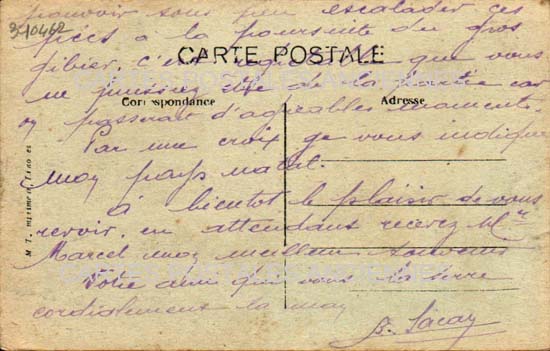 pouvoir sous peu escalader ces
3-10462
pics à la poursuite du gros
CARTE POSTALE
gibier. C'est regrettable que vous
ne puissiez être de la partie car
Correspondance
Adresse
on passerait d'agréables moments.
Par une croix je vous indique
mon pays natal.
à bientôt le plaisir de vous
revoir, en attendant recevez Mr
Marcel mon meilleur souvenir
Votre ami qui vous serre
cordialement la main
M. T.